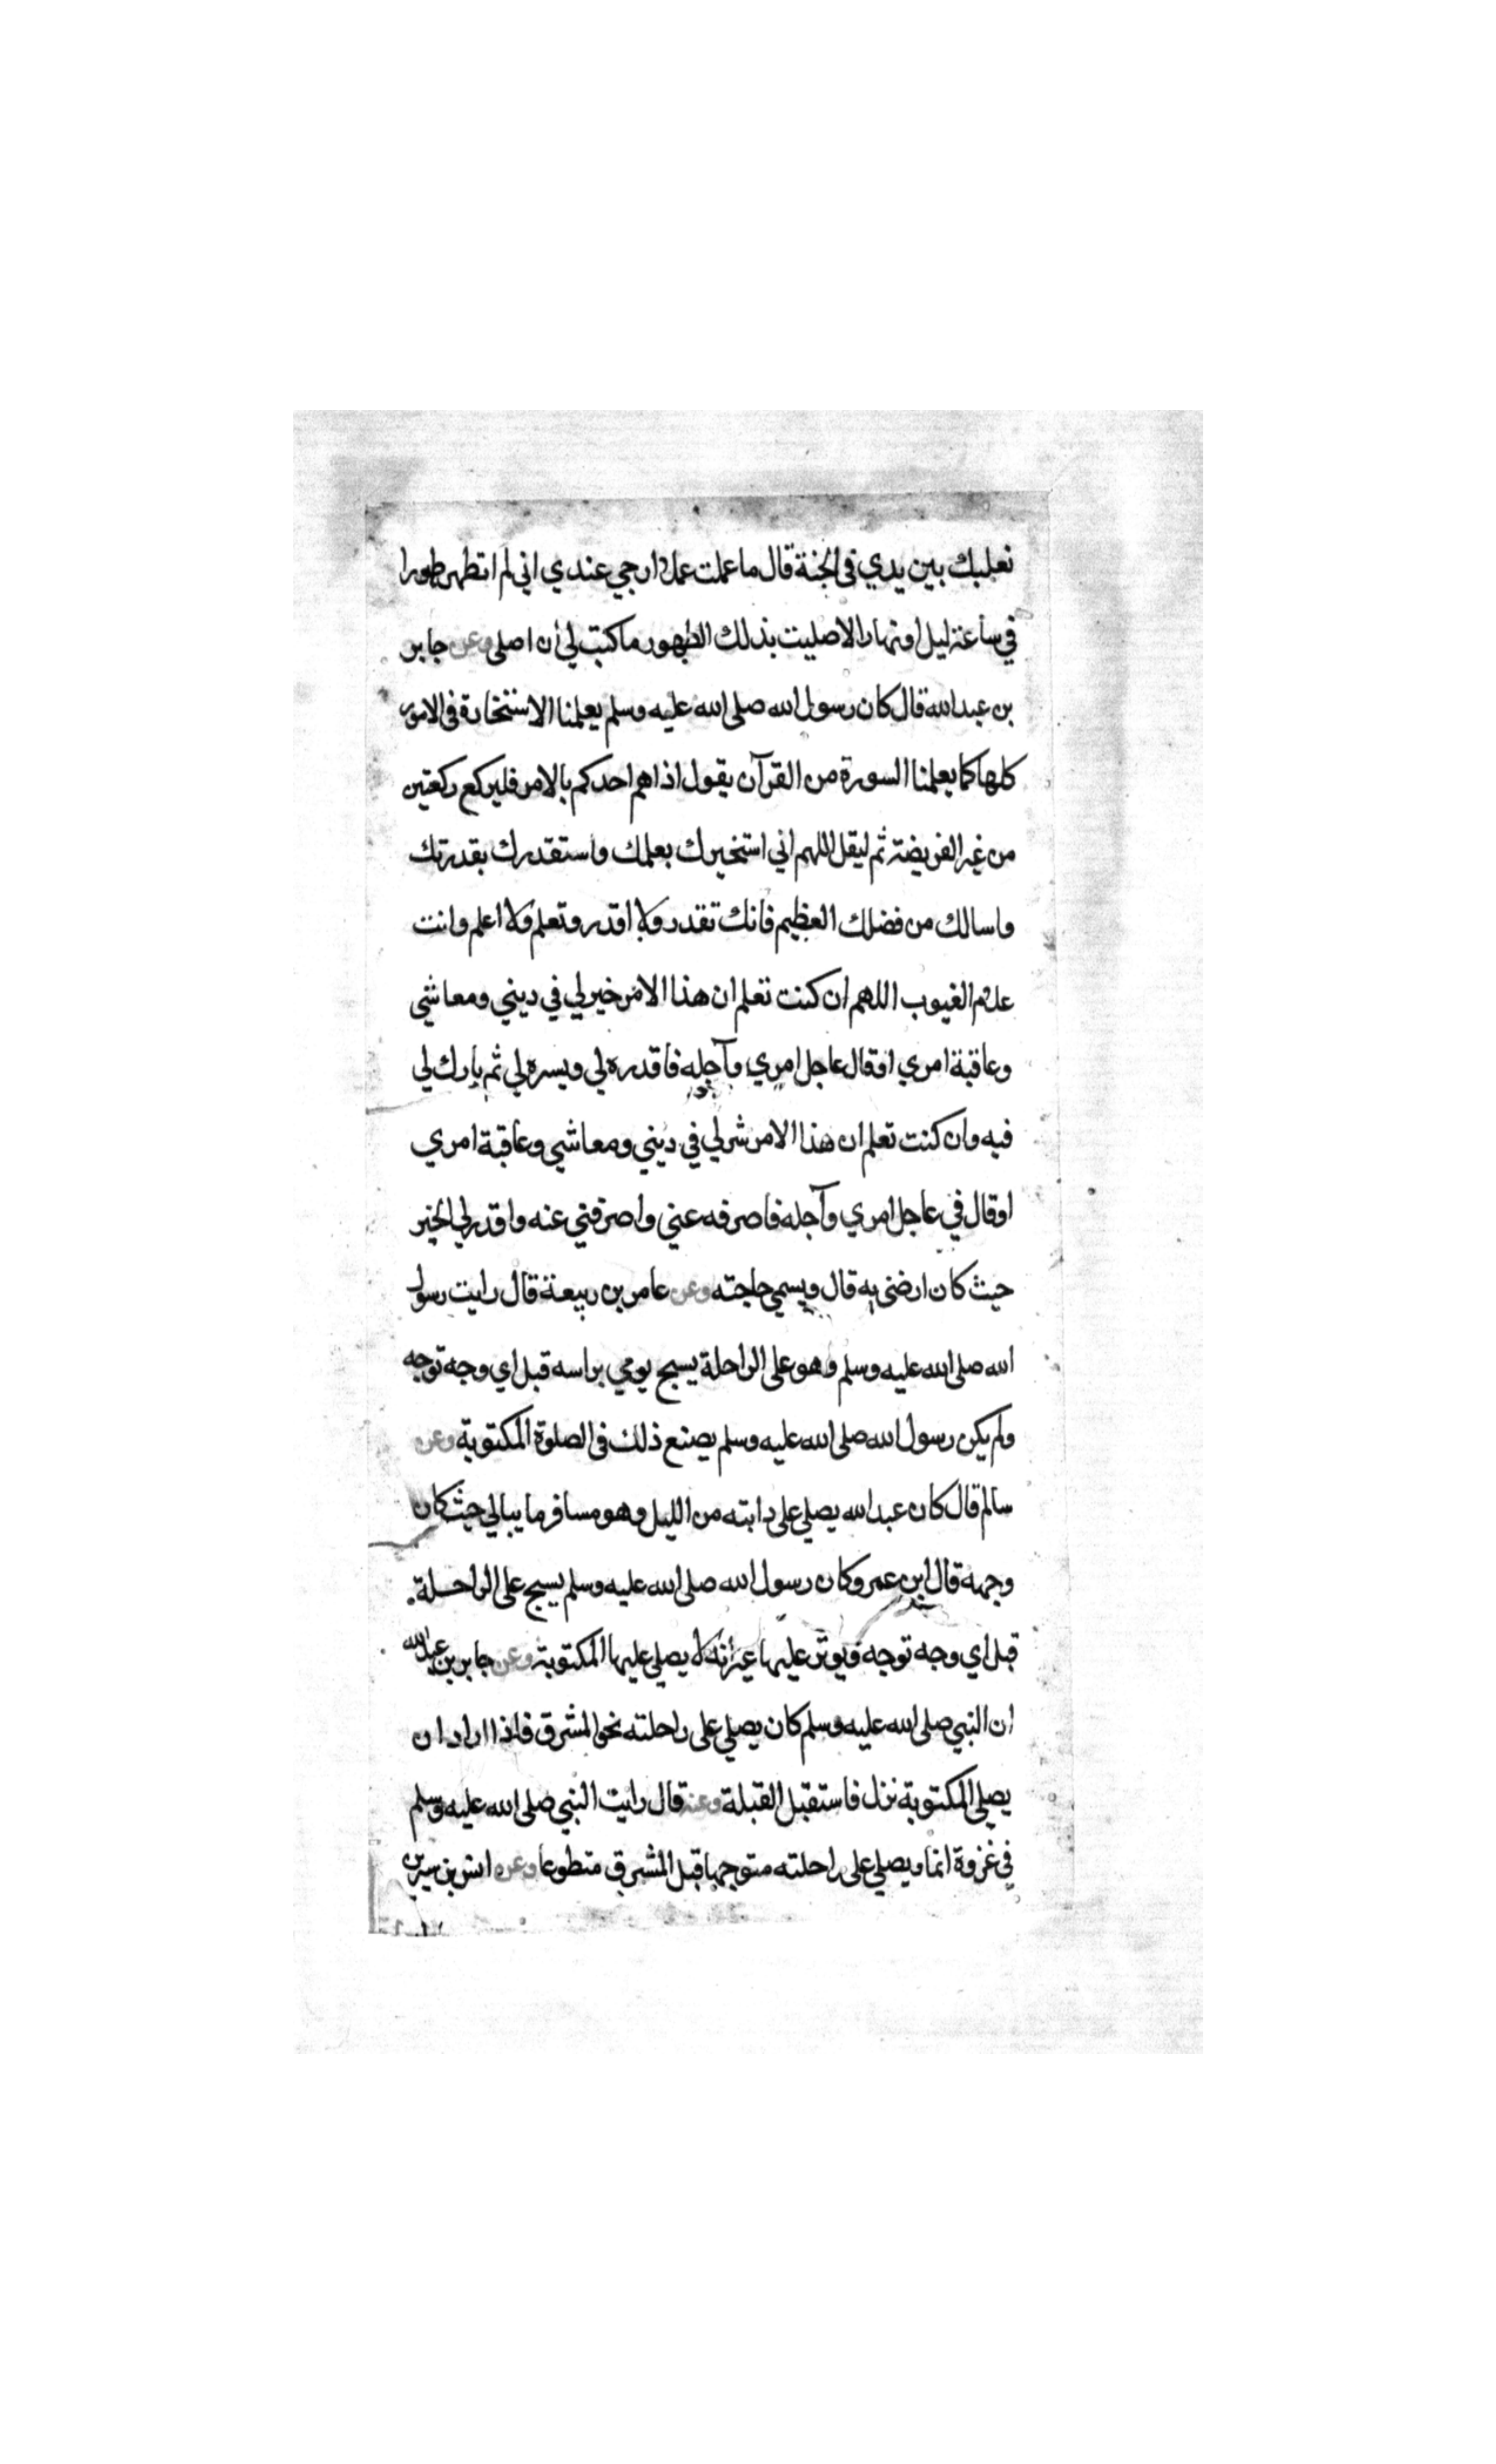 نعليك بين يدي في الجنة قال ما عملت عملا ارجي عندي اني لم اتطهر طهورا
في ساعة ليل او نهار الا صليت بذلك الطهور ما كتب لي أن اصلى وعن جابر
بن عبد الله قال كان رسول الله صلى الله عليه وسلم يعلمنا الاستخارة في الامور
كلها كما يعلمنا السورة من القرآن يقول اذا هم احدكم بالامر فليركع ركعتين
من غير الفريضة ثم ليقل اللهم اني استخيرك بعلمك واستقدرك بقدرتك
واسالك من فضلك العظيم فانك تقدر ولا اقدر وتعلم ولا اعلم وانت
علام الغيوب اللهم ان كنت تعلم ان هذا الامر خير لي في ديني ومعاشي
وعاقبة امري او قال عاجل امري وآجله فاقدره لي ويسره لي ثم بارك لي
فيه وان كنت تعلم ان هذا الامر شر لي في ديني ومعاشي وعاقبة امري
او قال في عاجل امري وآجله فاصرفه عني واصرفني عنه واقدر لي الخير
حيث كان ارضنى به قال ويسمي حاجته وعن عامر بن ربيعة قال رايت رسول
الله صلى الله عليه وسلم وهو على الراحلة يسبح يومي براسه قبل اي وجه توجه
ولم يكن رسول الله صلى الله عليه وسلم يصنع ذلك في الصلوة المكتوبة وعن
سالم قال كان عبد الله يصلي على دابته من الليل وهو مسافر ما يبالي حيث كان
وجهه قال ابن عمر وكان رسول الله صلى الله عليه وسلم يسبح على الراحلة
قبل اي وجه توجه ويوتر عليها غير أنه لا يصلي عليها المكتوبة وعن جابر بن عبد الله
ان النبي صلى الله عليه وسلم كان يصلي على راحلته نحو المشرق فاذا اراد ان
يصلي المكتوبة نزل فاستقبل القبلة وعنه قال رايت النبي صلى الله عليه وسلم
في غزوة انمار يصلي على راحلته متوجها قبل المشرق متطوعا وعن انس بن سيرين